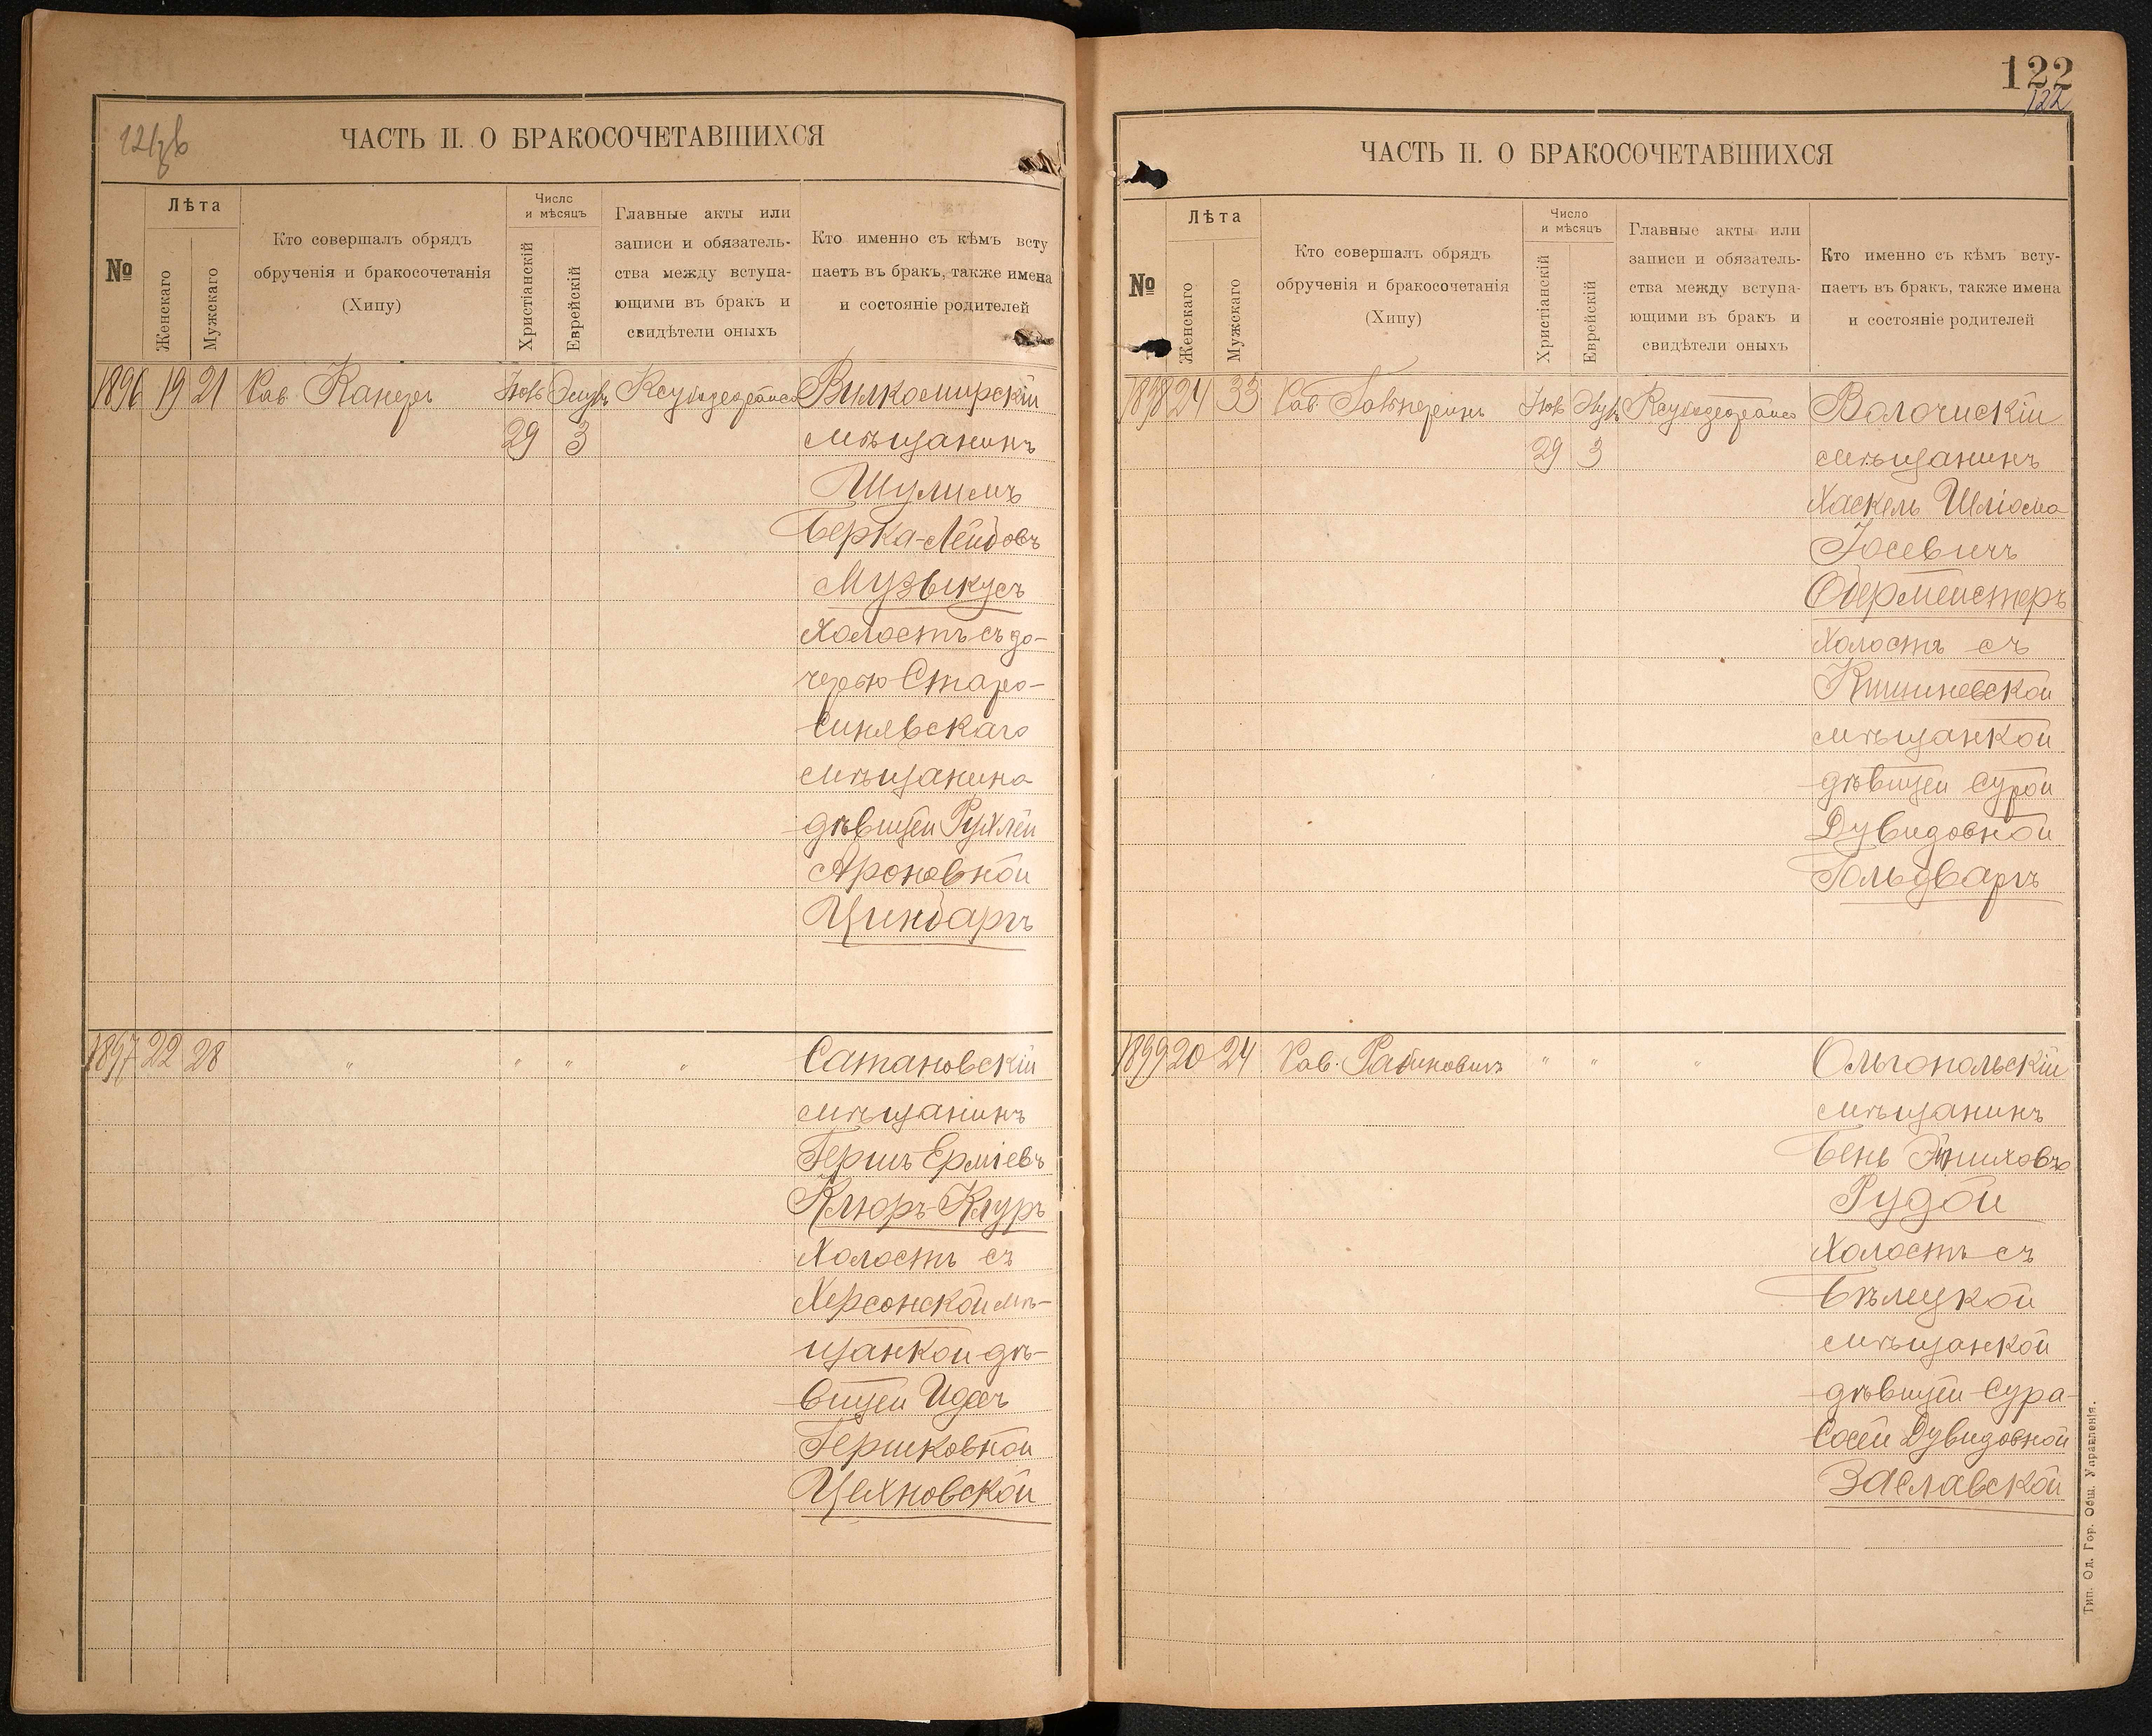 ЧАСТЬ II. О БРАКОСОЧЕТАВШИХСЯ
№
Лѣта
Женскаго
Мужскаго
Кто совершалъ обрядъ
обрученія и бракосочетанія
(Хипу)
Число
и мѣсяцъ
Христіанскій
Еврейскій
Главные акты или
записи и обязатель-
ства между вступа-
ющими въ бракъ и
свидѣтели оныхъ
Кто именно съ кѣмъ всту
паетъ въ бракъ, также имена
и состояніе родителей
1896 19 21 Рав. Канеръ Вилкомирскій
29 3 мѣщанинъ
Шулимъ
Берка-Лейбовъ
Музыкусъ
холостъ съ до-
черью Старо-
синявскаго
мѣщанина
дѣвицей Рухлей
Ароновной
Цинбаргъ
1897 22 28 " " " " Сатановскій
мѣщанинъ
Гершъ Ерміевъ
Клюръ-Клуръ
холостъ съ
Херсонской мѣ-
щанкой дѣ-
вицей Идесъ
Гершковной
Цехновской
122
122
ЧАСТЬ II. О БРАКОСОЧЕТАВШИХСЯ
№
Лѣта
Женскаго
Мужскаго
Кто совершалъ обрядъ
обрученія и бракосочетанія
(Хипу)
Число
и мѣсяцъ
Христіанскій
Еврейскій
Главные акты или
записи и обязатель-
ства между вступа-
ющими въ бракъ и
свидѣтели оныхъ
Кто именно съ кѣмъ всту-
паетъ въ бракъ, также имена
и состояніе родителей
1898 24 33 Рав. Гальперинъ Волочискій
29 3 мѣщанинъ
Хаскель Шліома
Іосевичъ
Обермейстеръ
холостъ съ
Кишиневской
мѣщанкой
дѣвицей Сурой
Дувидовной
Гольдваргъ
1899 20 24 Рав. Рабиновичъ " " " Ольгопольскій
мѣщанинъ
Бень
Рудой
холостъ съ
Бѣлецкой
мѣщанкой
дѣвицей Сура-
Сосей Дувидовной
Заславской
Тип. Од. Гор. Общ. Управленія.